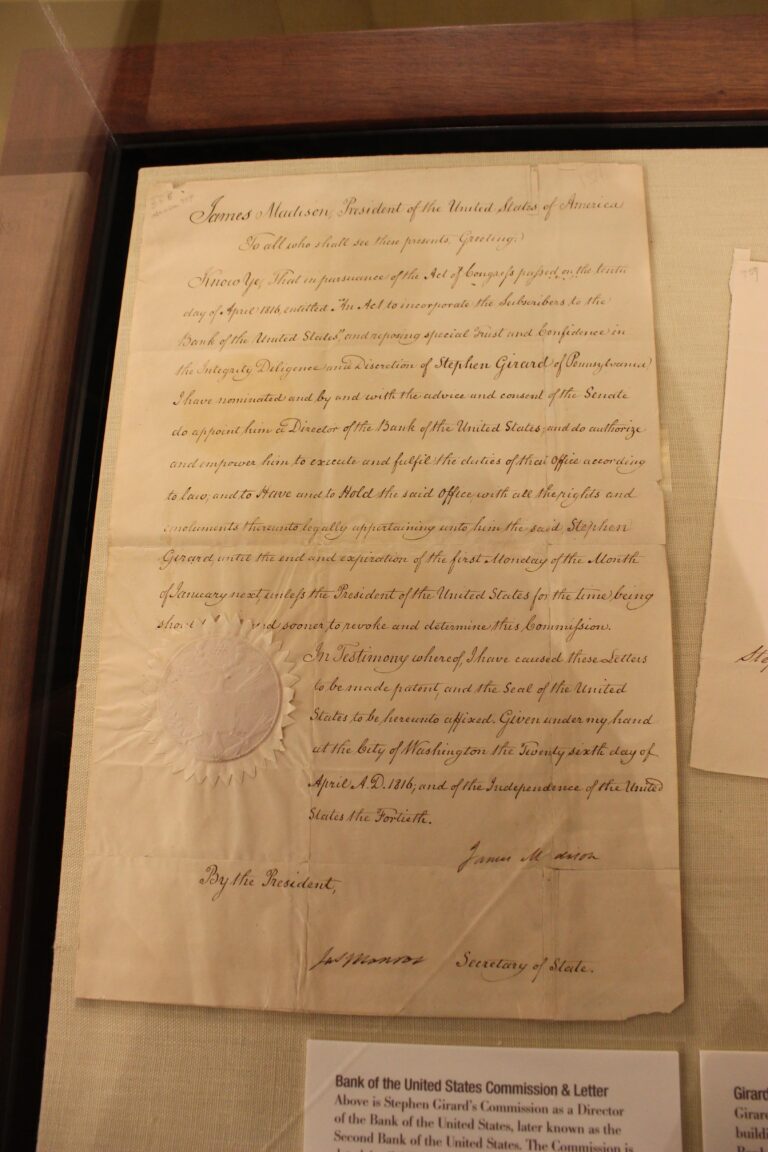 James Madison, President of the United States of America
To all who shall see these presents, Greeting:
Know Ye, That in pursuance of the Act of Congress passed on the tenth
day of April 1816, entitled "An Act to incorporate the Subscribers to the
Bank of the United States", and reposing special Trust and Confidence in
the Integrity Diligence and Discretion of Stephen Girard of Pennsylvania
I have nominated and by and with the advice and consent of the Senate
do appoint him a Director of the Bank of the United States; and do authorize
and empower him to execute and fulfil the duties of that Office according
to law, and to Have and to Hold the said Office with all the rights and
emoluments thereunto legally appertaining unto him the said Stephen
Girard, until the end and expiration of the first Monday of the Month
of January next, unless the President of the United States for the time being
sooner, to revoke and determine this Commission.
In Testimony whereof, I have caused these Letters
to be made patent, and the Seal of the United
States to be hereunto affixed. Given under my hand
at the City of Washington the Twenty sixth day of
April A.D. 1816; and of the Independence of the United
States the Fortieth.
James Madison
By the President,
Jas Monroe Secretary of State.
Bank of the United States Commission & Letter
Above is Stephen Girard's Commission as a Director
of the Bank of the United States, later known as the
Second Bank of the United States. The Commission is
Girard
Girard